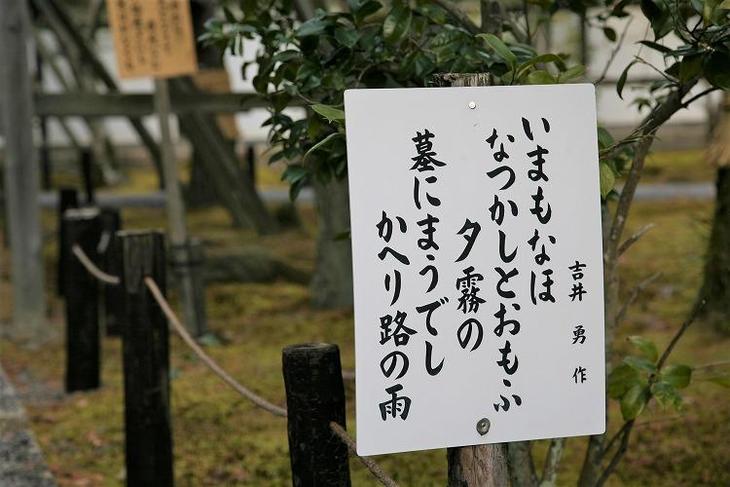 吉井 勇 作
いまもなほ
なつかしとおもふ
夕霧の
墓にまうでし
かへり路の雨